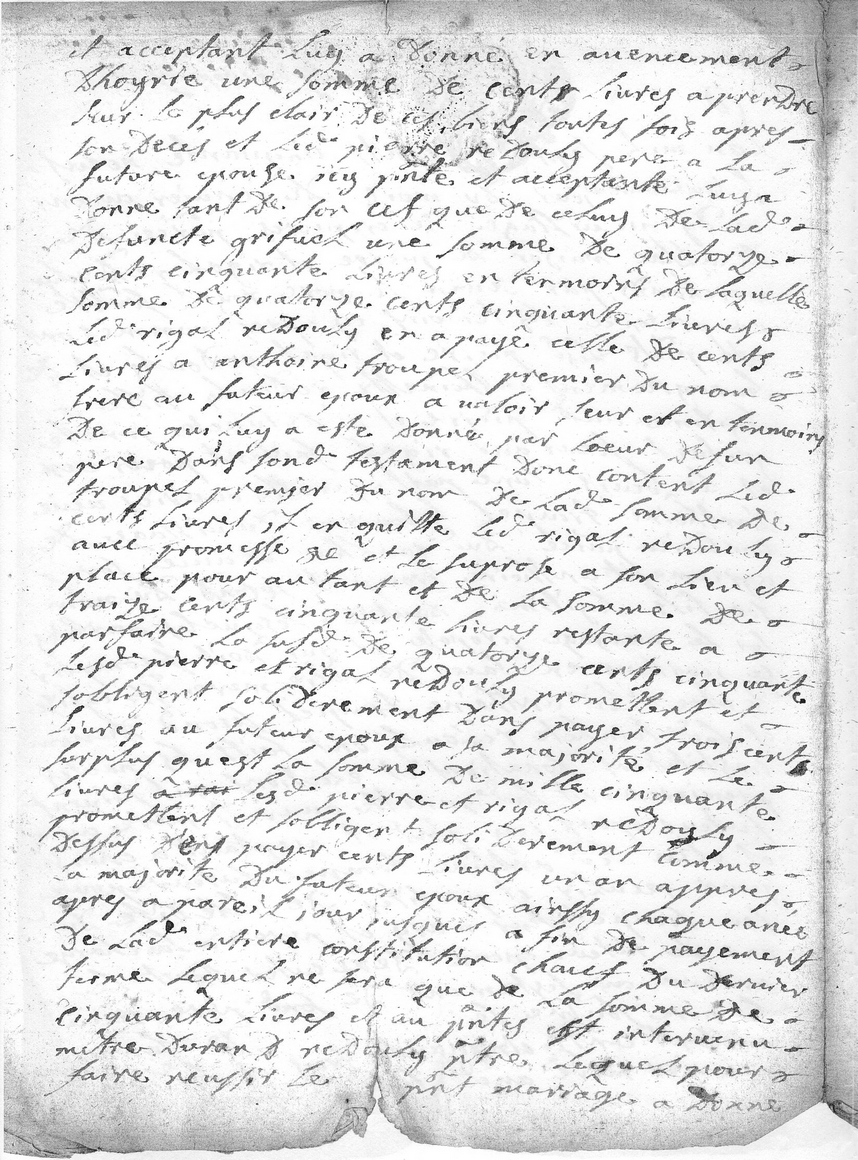 et acceptant luy a donné en avencement
dhoyrie une somme de cents livres a prendre
sur le plus clair de ces biens toutes fois apres
son deces et led pierre redouly pere a la
future epouse icy pnte et acceptante luy a
donne tant de son cef que de celuy de lad
defuncte grifuel une somme de quatorze
cents cinquante livres en termoins de laquelle
somme de quatorze cents cinquante livres
led rigal redouly en a payé celle de cents
livres a anthoine troupel premier du nom
frere au futeur epoux a valoir seur et en termoins
de ce qui luy a este donné par loeur defun
pere dans sond testament donc content led
troupel premier du nom de lad somme de
cents livres il en quitte led rigal redouly
avec promesse de et le suprose a son lieu et
place pour autant et de la somme de
traize cents cinquante livres restante a
parfaire la susd de quatorze cents cinquante
lesd pierre et rigal redouly promettent et
sobligent soliderement dans payer trois cents
livres au futeur epoux a sa majorite et le
surplus quest la somme de mille cinquante
livres a lesd pierre et rigal redouly
promettent et sobligent soliderement comme
dessus dens payer cents livres un an appres
la majorite du futeur epoux ainssy chaque anée
apres a pareil jour jusques a fin de payement
de lad entiere constitution chauef du dernier
terme lequel ne sera que de la somme de
cinquante livres et au pntes est intervenu
metre durand redouly ptre lequel pour
faire reussir le pnt mariage a donne